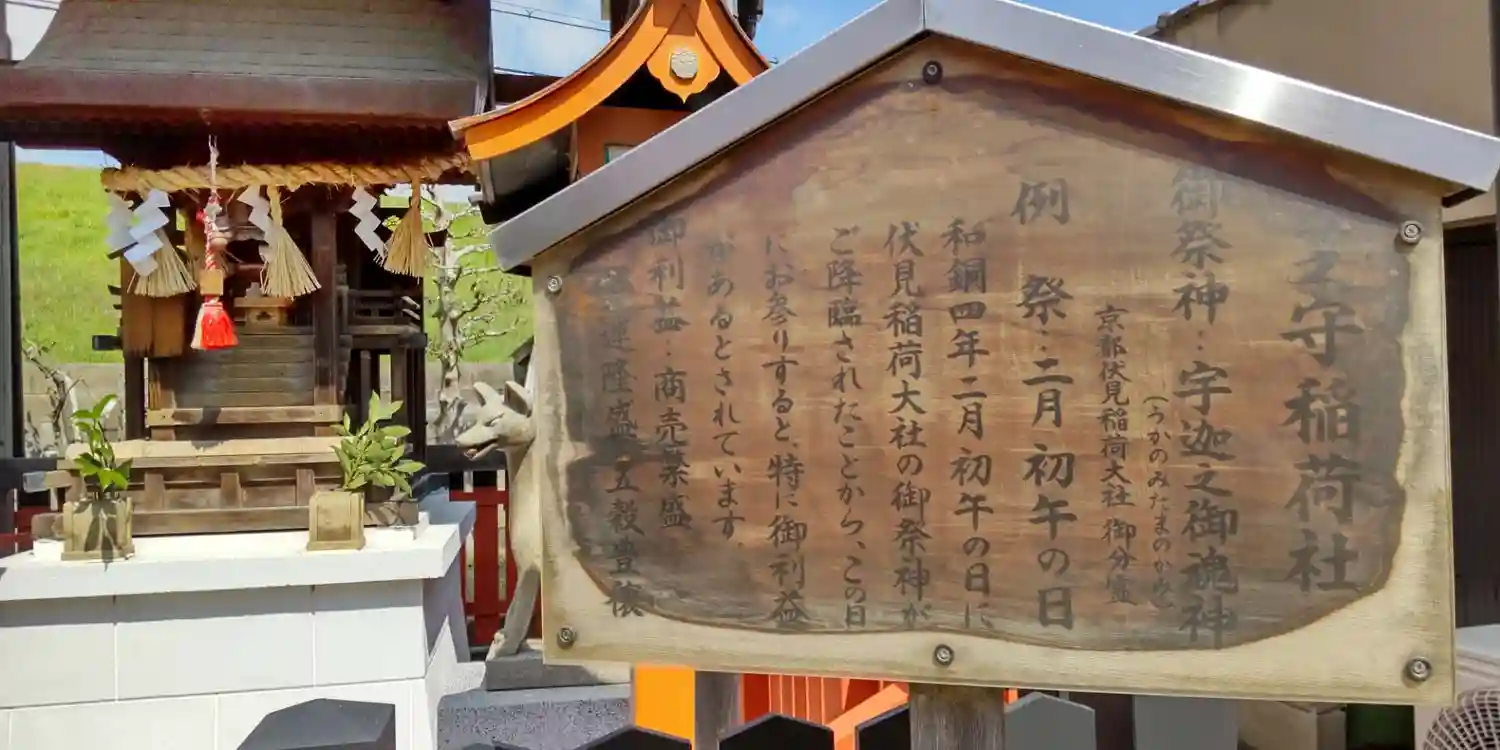 守稲荷社
御祭神：宇迦之御魂神
（うかのみたまのかみ）
京都伏見稲荷大社 御分霊
例 祭：二月 初午の日
和銅四年二月初午の日に
伏見稲荷大社の御祭神が
ご降臨されたことから、この日
にお参りすると、特に御利益
があるとされています。
御利益：商売繁盛
運隆盛 五穀豊穣